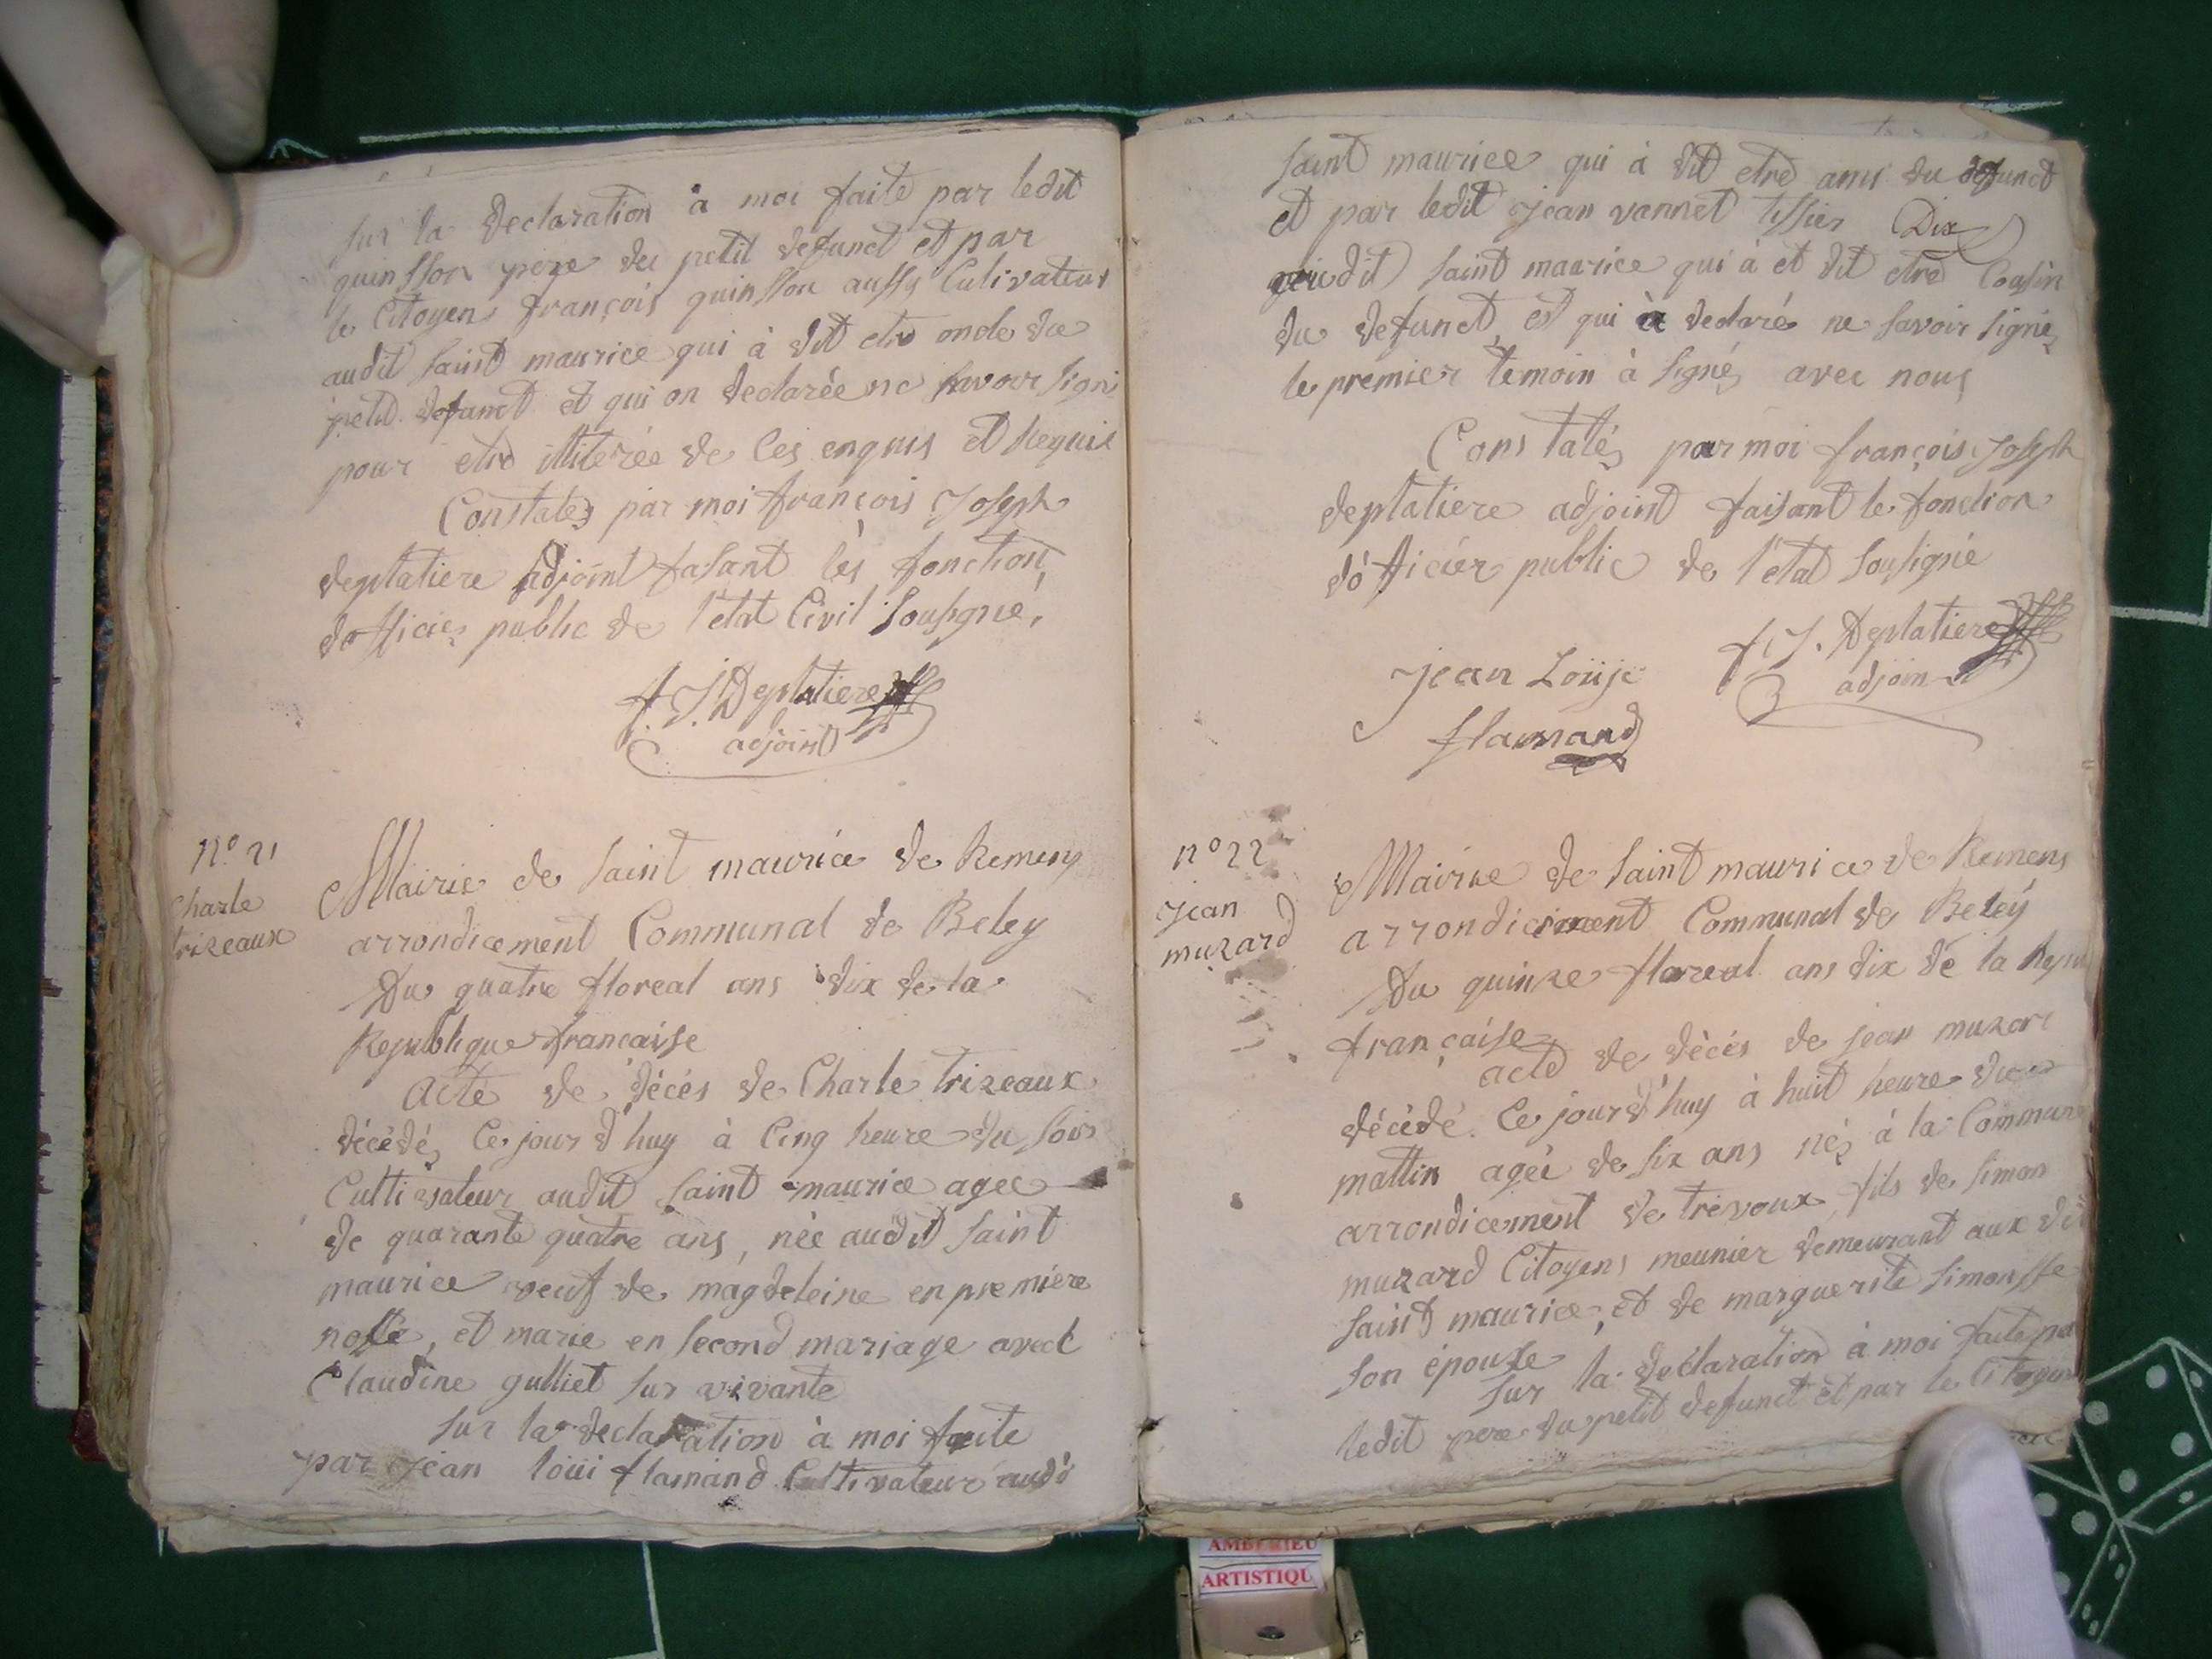 sur la declaration à moi faite par ledit
quinsson pere du petit defunct et par
le Citoyen françois quinsson aussy Cultivateur
audit saint maurice qui à dit etre oncle du
petit defunct et qui on declarée ne savoir signé
pour etre illiterée de ces enquis et Requis
Constatés par moi françois Joseph
deplatiere adjoint fasant les fonction
dofficier public de l'état Civil sousigné,
f. J. Deplatiere
adjoint
N.º 21
Charle
trizeaux
Mairie de saint maurice de Remens
arrondicement Communal de Beley
Du quatre floreal ans dix de la
Republique francaise
Acte de décès de Charle trizeaux
décédé, Ce jour d'huy à Cinq heure du soir
Cultivateur audit saint maurice agee
de quarante quatre ans, née audit saint
maurice veuf de magdeleine en premiere
et marie en second mariage avec
Claudine gulliet sur vivante
sur la declaration à moi faite
par jean loui flamand Cultivateur audi
saint maurice qui à dit etre ami du defunct
et par ledit jean vannet tissier Dix
saint maurice qui à et dit etre Cousin
du defunct et qui à declaré ne savoir signé,
le premier temoin à signé, avec nous
Constatés par moi françois Joseph
deplatiere adjoint faisant le fonction
d'officier public de l'état sousignié
jean Loüis
flamand
f. J. Deplatiere
adjoin
nº 22
jean
muzard
Mairie de saint maurice de Remens
arrondicement Communal de Beley
Du quinze floreal ans dix de la Repu
française
acte de décès de jean muzard
décédé Ce jour d'huy à huit heure du
mattin ageé de six ans né à la Commune
arrondicement de trevoux, fils de simon
muzard Citoyens meunier demeurant aux dit
saint maurice, et de marguerite simonsse
son épouse
sur la declaration à moi faite par
ledit pere du petit defunct et par le Citoyen
AMBERIEU
ARTISTIQU